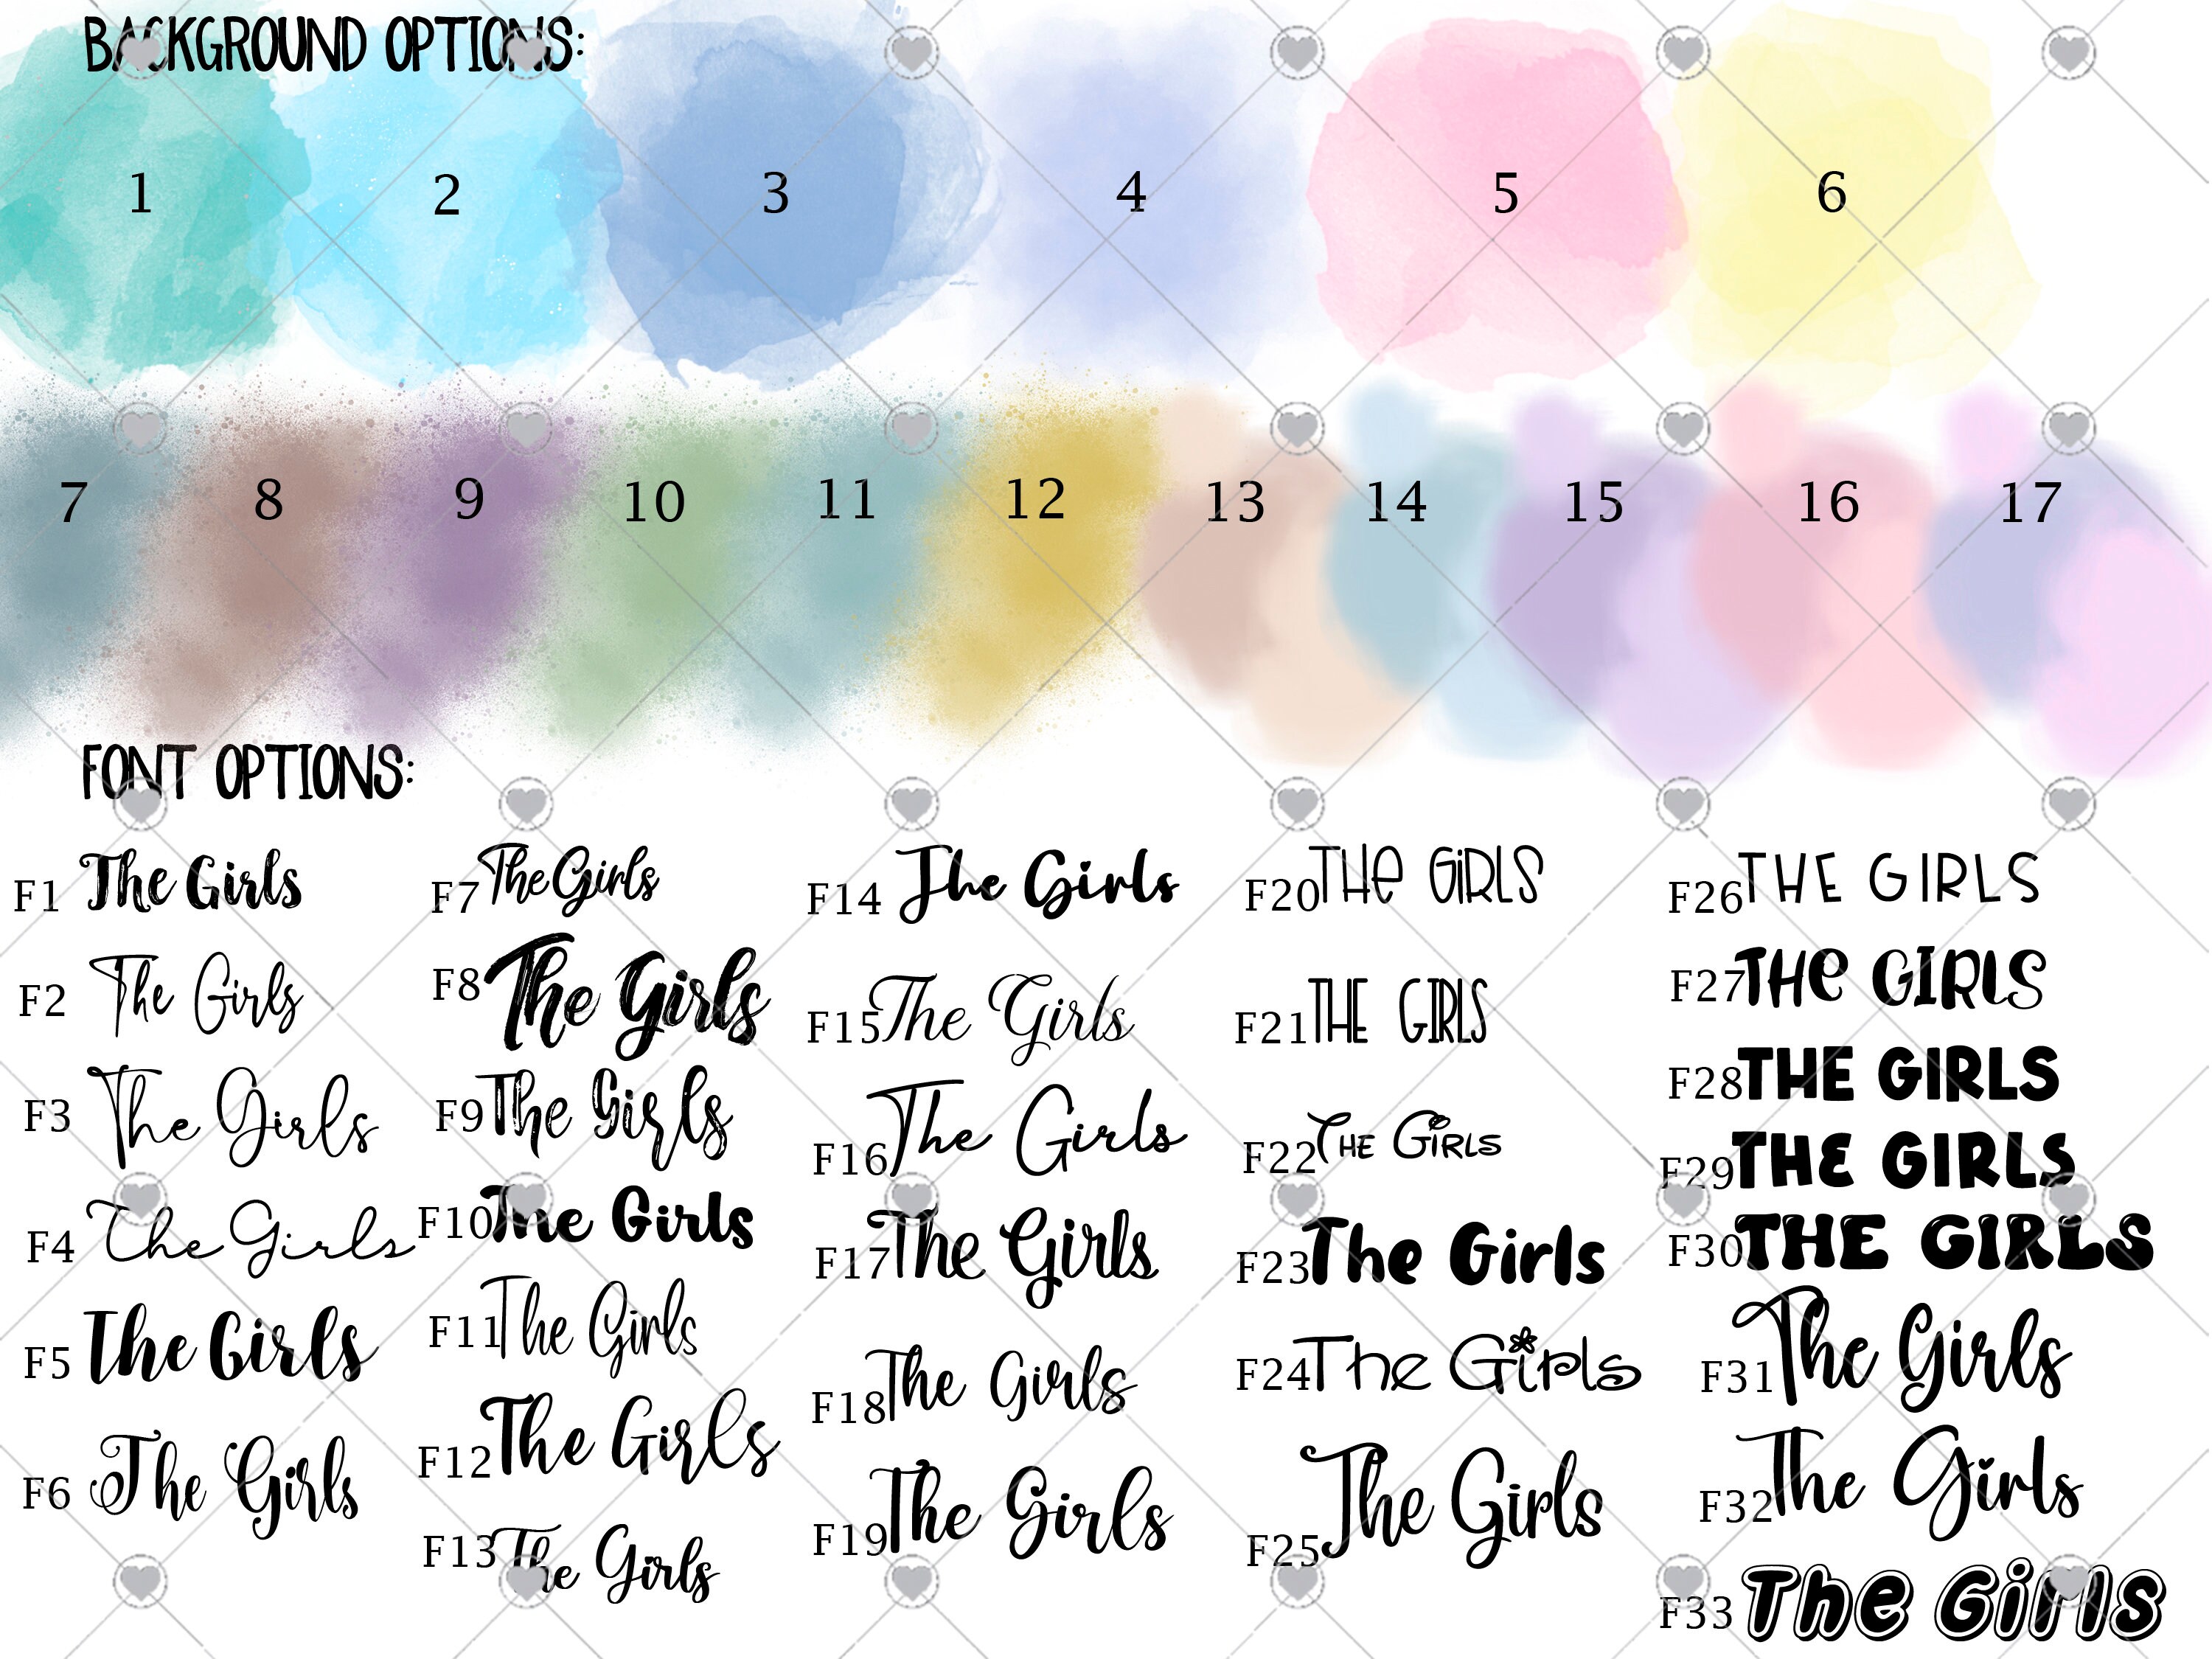 BACKGROUND OPTIONS:
1 2 3 4 5 6
7 8 9 10 11 12 13 14 15 16 17
FONT OPTIONS:
F1 The Girls
F2 The Girls
F3 The Girls
F4 The Girls
F5 The Girls
F6 The Girls
F7 The Girls
F8 The Girls
F9 The Girls
F10 The Girls
F11 The Girls
F12 The Girls
F13 The Girls
F14 The Girls
F15 The Girls
F16 The Girls
F17 The Girls
F18 The Girls
F19 The Girls
F20 THe GiRLS
F21 THE GIRLS
F22 THE GIRLS
F23 The Girls
F24 The Girls
F25 The Girls
F26 THE GIRLS
F27 THe GIRLS
F28 THE GIRLS
F29 THE GIRLS
F30 THE GIRLS
F31 The Girls
F32 The Girls
F33 The Girls